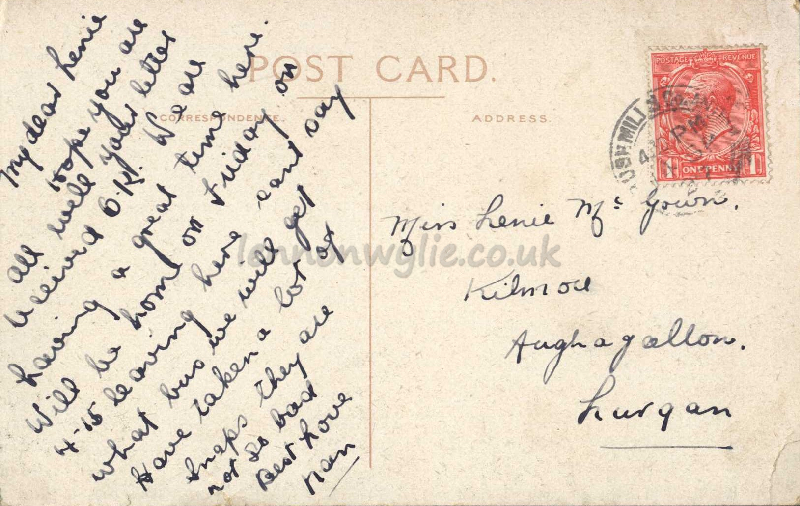 POST CARD.
CORRESPONDENCE.
ADDRESS.
My dear Lenie
Hope you are
all well your letter
received O.K. We are
having a great time here.
Will be home on Friday on
4-15 leaving here cant say
what bus we will get
Have taken a lot of
snaps they are
not so bad
Best Love
Nan
POSTAGE REVENUE
ONE PENNY
PM
Miss Lenie McGown.
Kilmore
Aughagallon.
Lurgan
lennonwylie.co.uk